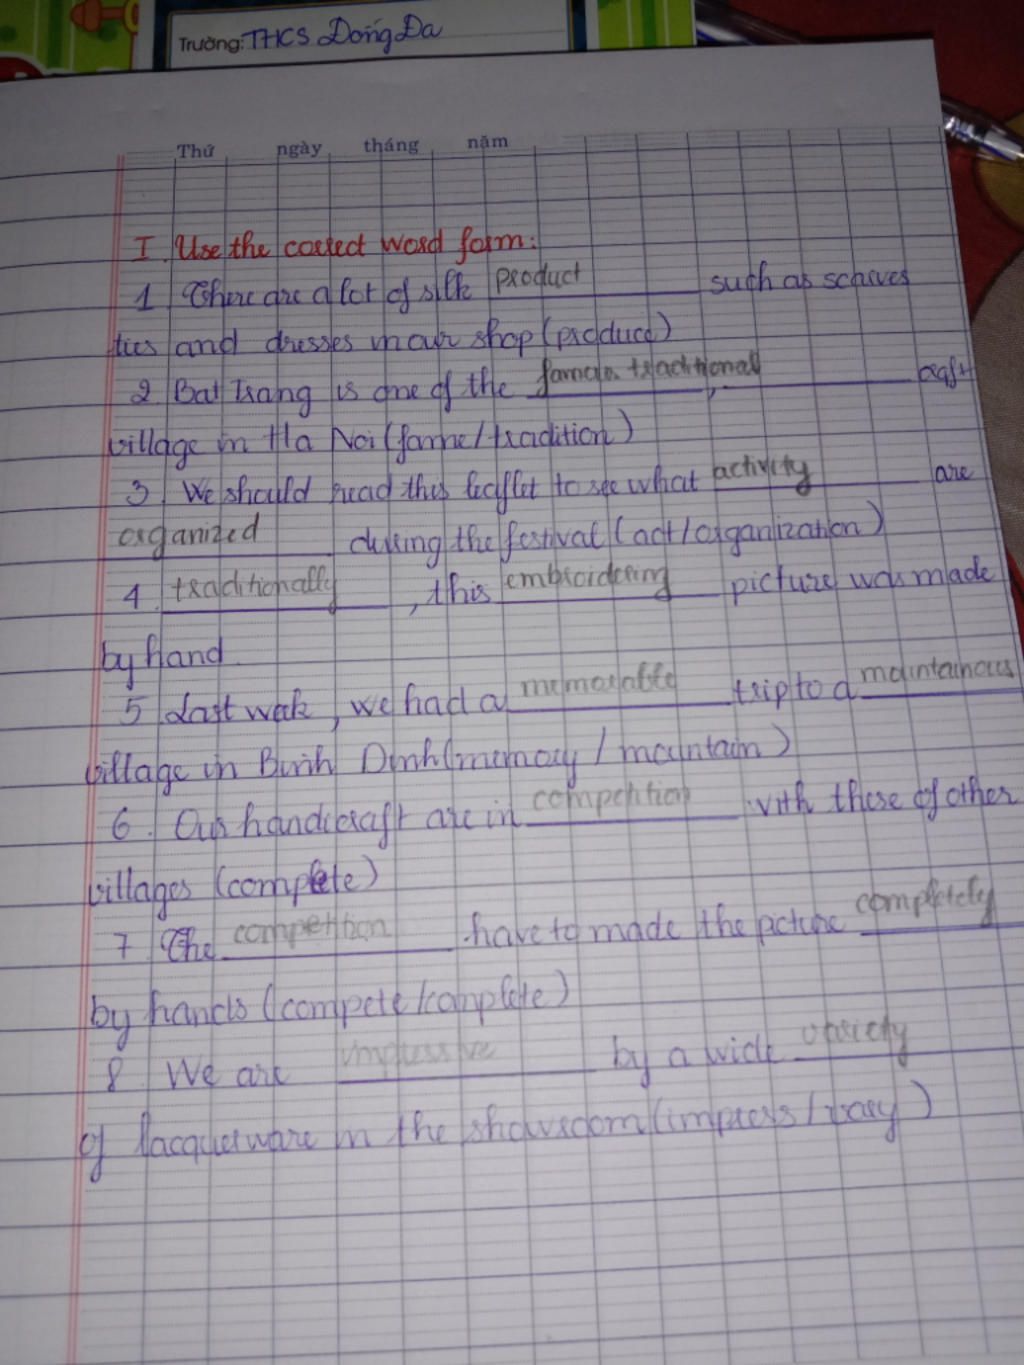 Trường: THCS Đống Đa
Thứ ngày tháng năm
I. Use the correct word form:
1 There are a lot of silk product such as scarves
ties and dresses in our shop (produce)
2 Bat Trang is one of the traditional, craft
village in Ha Noi (fame/tradition)
3 We should read this leaflet to see what activity are
organized during the festival (act/organization)
4 traditionally, this embroidering picture was made
by hand
5 Last week, we had a memorable trip to a mountainous
village in Binh Dinh (memory / mountain)
6. Our handicraft are in competition with those of other
villages (compete)
7 The competition have to made the picture completely
by hands (compete/complete)
8 We are impressive by a wide variety
of lacquerware in the showroom (impress / vary)